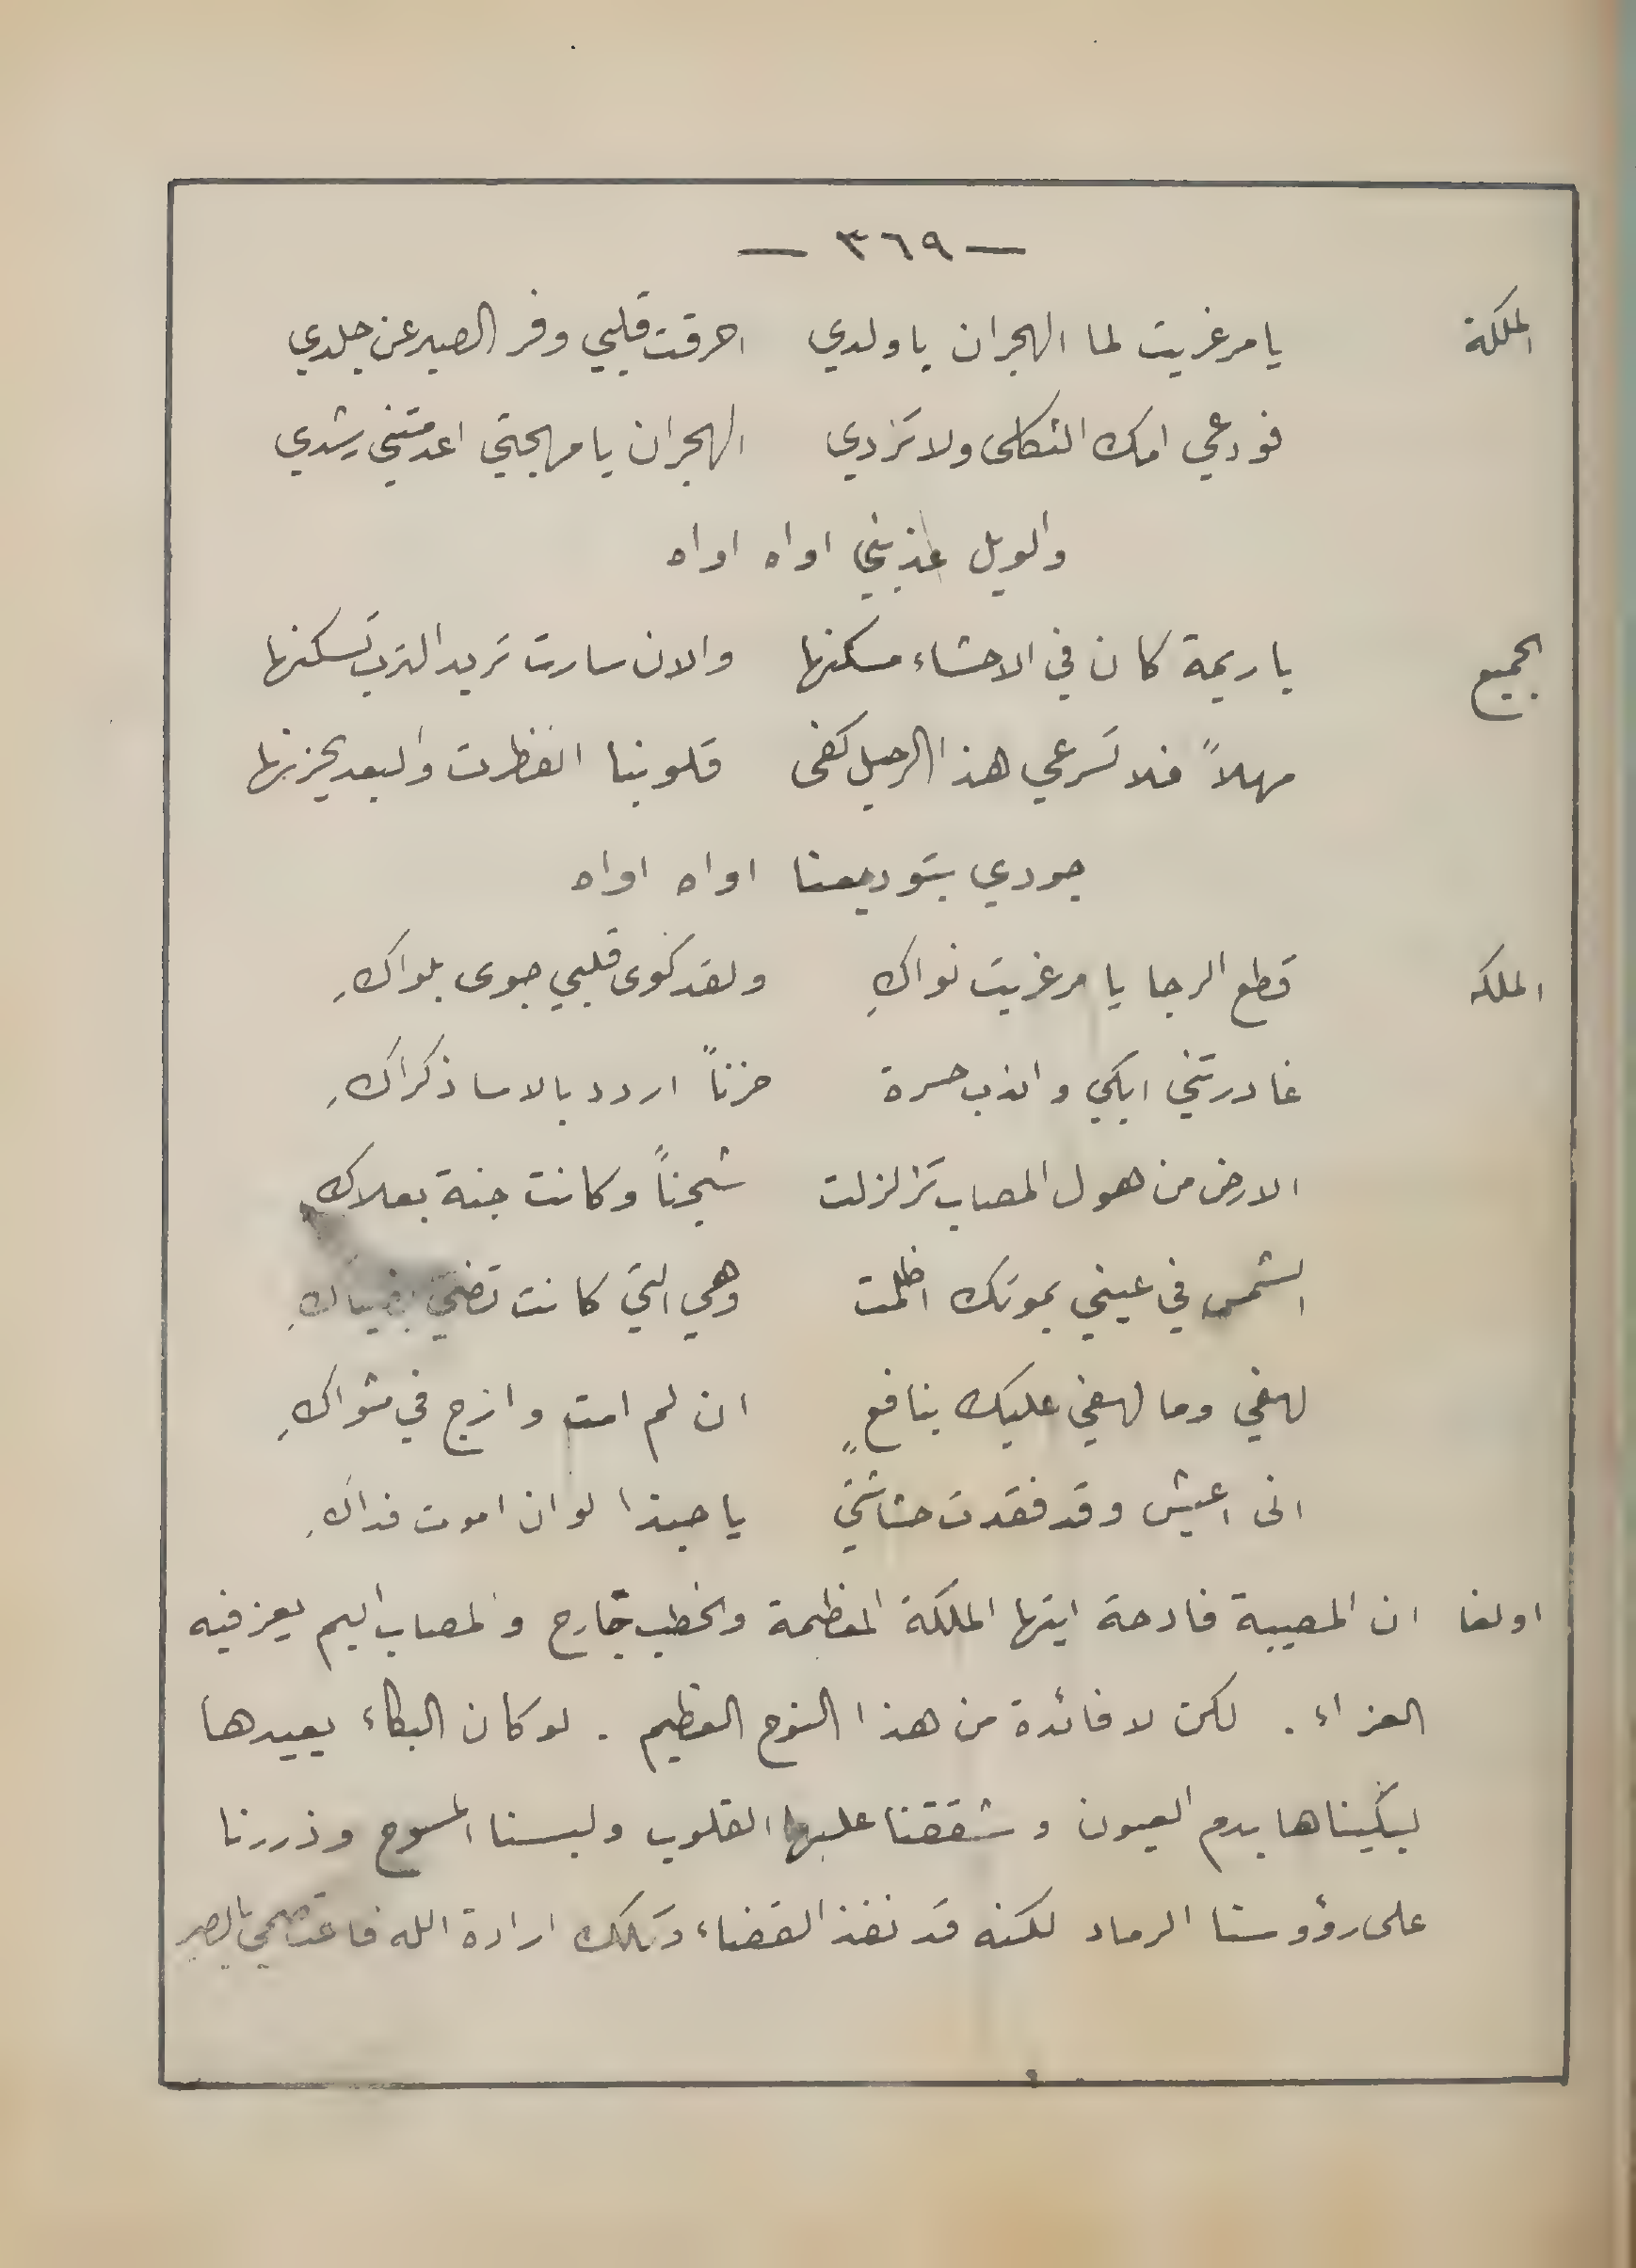 — ٣٦٩ —
الملكة يا مرغريت لما الهجران يا ولدي احرقت قلبي وفر الصبر عن جلدي
فودعي امك الثكلى ولا تزدي الهجران يا مهجتي اعدمتني رشدي
والويل عذبني اواه اواه
الجميع يا ريمة كان في الاحشاء مسكنها والان سارت تريد الترب تسكنها
مهلاً فلا تسرعي هذا الرحيل كفى قلوبنا انفطرت والبعد يحزنها
جودي بتوديعنا اواه اواه
الملكه قطع الرجا يا مرغريت نواكِ ولقد كوى قلبي جوى بلواكِ
غادرتني ابكي واندب حسرة حزناً اردد بالاسا ذكراكِ
الارض من هول المصاب تزلزلت شجناً وكانت جنة بعلاكِ
الشمس في عيني بموتك اظلمت وهي التي كانت تضيَ بضياكِ
لهفي وما لهفي عليك بنافعٍ ان لم امت وازج في مثواكِ
انى اعيش وقد فقدت حشاشتي يا حبذا لو ان اموت فداكِ
اولغا ان المصيبة فادحة ايتها الملكة المعظمة والخطب جارح والمصاب اليم يعز فيه
العزاء . لكن لا فائدة من هذا النوح العظيم . لو كان البكاء يعيدها
لبكيناها بدم العيون وشققنا عليها القلوب ولبسنا المسوح وذررنا
على رؤوسنا الرماد لكنه قد نفذ القضاء وتلك ارادة الله فاعتصمي بالصبر